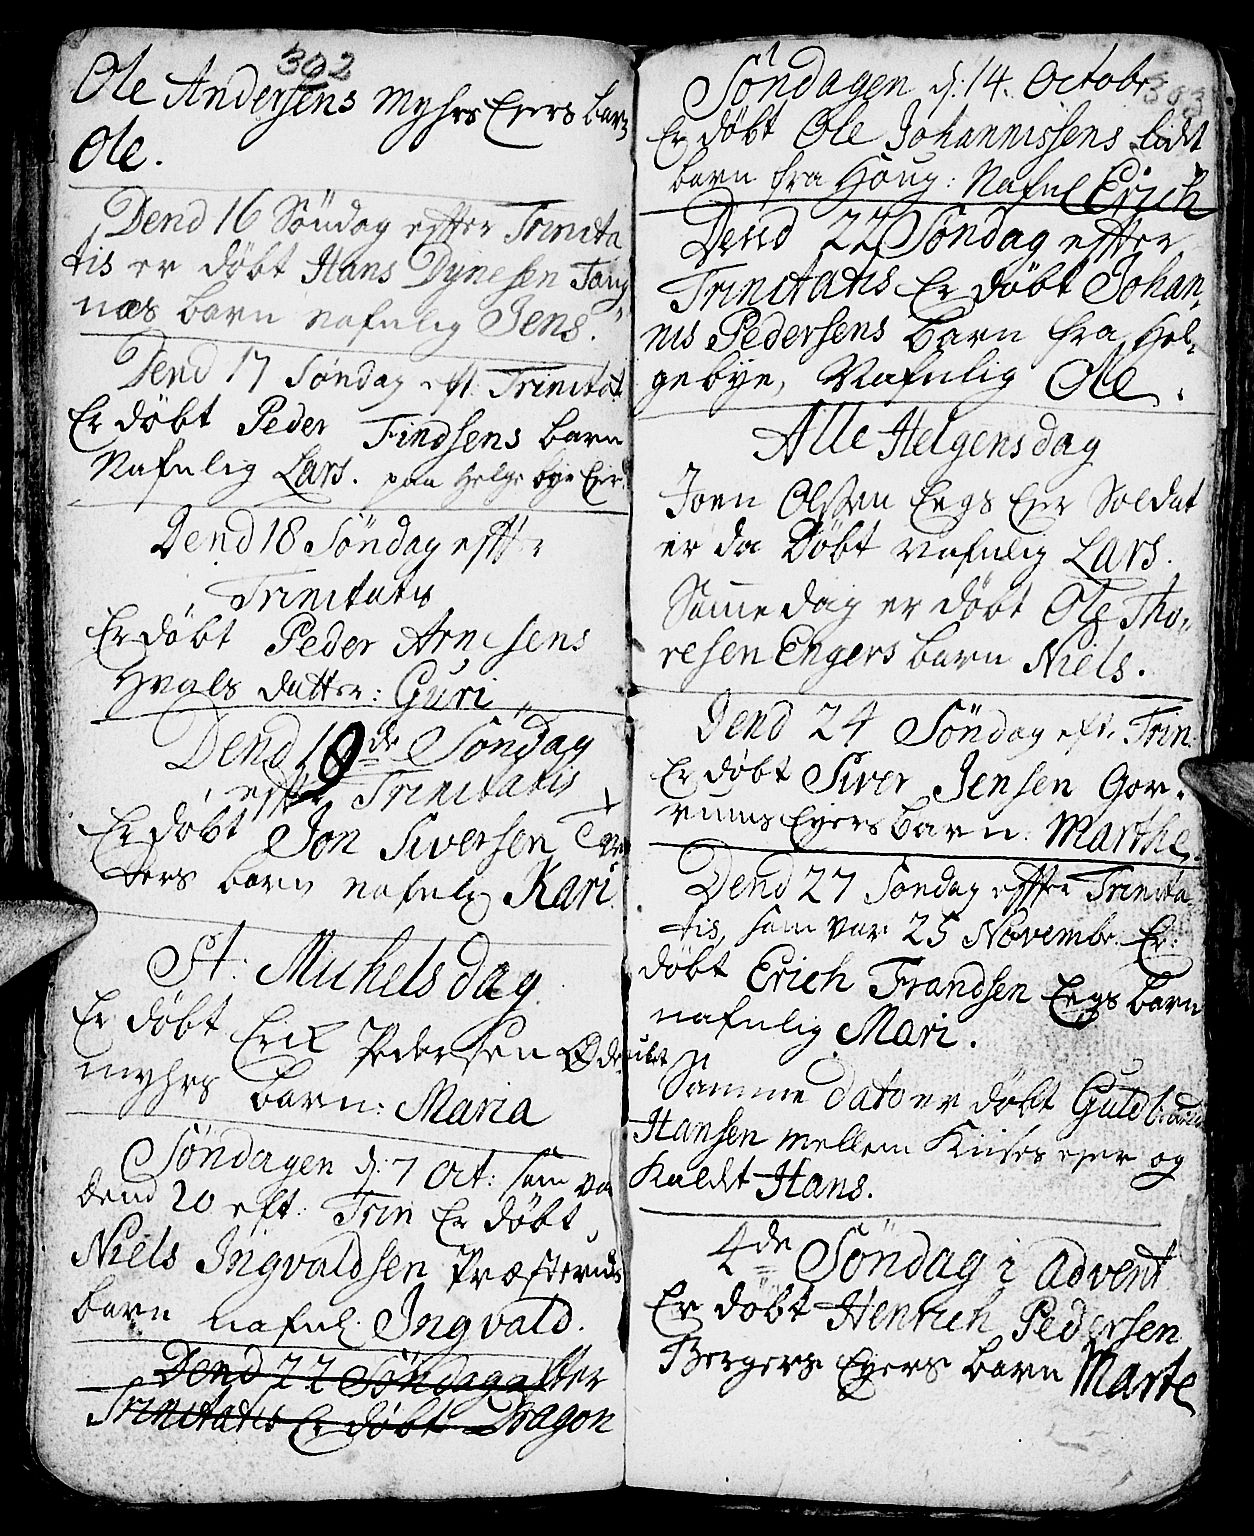 302
Ole Andersens Myhrs Eyers barn
Ole.
Dend 16 Söndag effter Trinita
tis er döbt Hans Dynesen Tang
næs barn nafnlig Jens.
Dend 17 Söndag eft. Trinitat
Er döbt Peder Findsens barn
Nafnlig Lars. paa Helgebye Eier
Dend 18 Söndag effter
Trinitatis
Er döbt Peder Arnesens
Hvals datter: Guri
Dend 19de Söndag
effter Trinitatis
Er döbt Jon Siversen
barn nafnlig Kari.
St. Michelsdag
Er döbt Erik Pedersen Øde
myhrs barn: Maria
Söndagen d: 7 Oct: som var
dend 20 eft: Trin Er döbt
Niels Ingvaldsen Præsteruds
barn nafnl. Ingvald.
Dend 22 Söndag effter
Trinitatis Er döbt Dragon
303
Söndagen d: 14. Octobr
Er döbt Ole Johannissens lidet
barn fra Houg: Nafnl Erich
Dend 22 Söndag effter
Trinitatis Er döbt Johan-
nis Pedersens barn fra Hel-
gebye, Nafnlig Ole.
Alle Helgensdag
Joen Olssen Eegs Eier Soldat
er da Döbt nafnlig Lars.
Samme dag er döbt Ole Tho-
resen Engers barn Niels.
Dend 24 Söndag eft. Trin
Er döbt Siver Jensen Gor-
rums Eyers barn: Marthe.
Dend 27 Söndag effter Trinita-
tis, som var 25 Novembr. Er
döbt Erich Frandsen Eegs barn
nafnlig Mari.
Samme dato er döbt Guldbrand
Hansen mellem Kiises eyer og
Kaldet Hans.
4de Söndag i Advent
Er döbt Henrich Pedersen
Bergers Eyers barn Marte